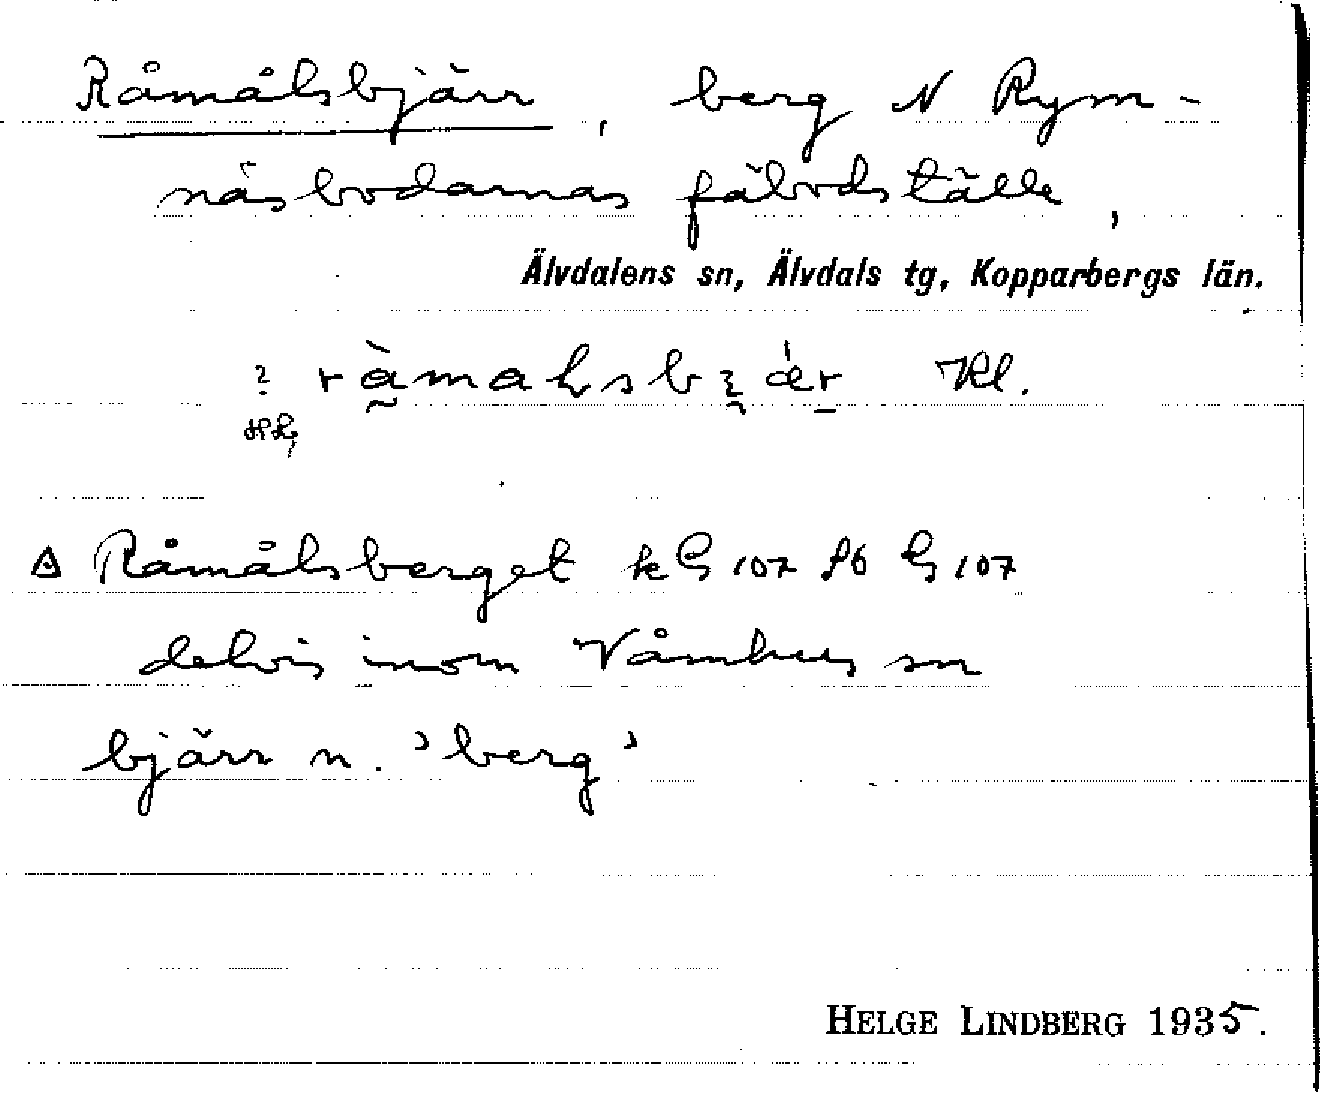 Råmålsbjärr, berg N Rym-
näsbodarnas fäbodställe,
Älvdalens sn, Älvdals tg, Kopparbergs län.
? Kl.
△ Råmålsberget k G 107 S6 G 107
delvis inom Våmhus sn
bjärr n. 'berg'
HELGE LINDBERG 1935.